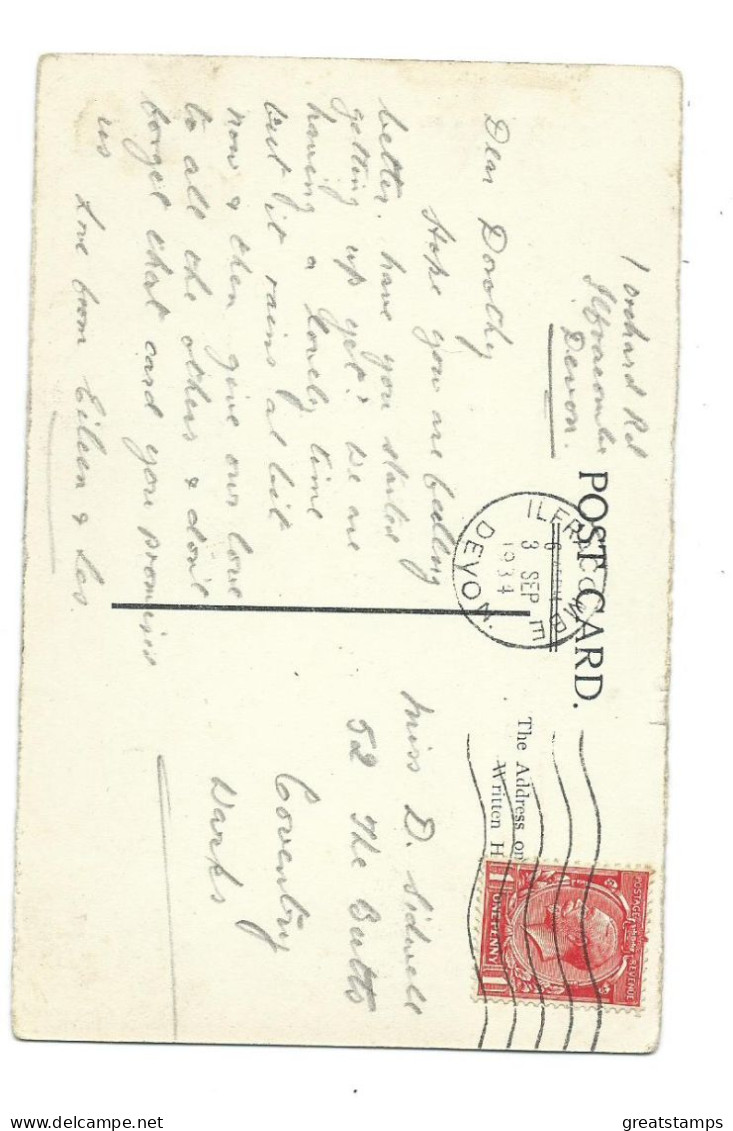 1 Orchard Rd
Ilfracombe
Devon.
POST CARD.
The Address on
Written H
ILFRACOMBE
3 SEP
1934
DEVON.
POSTAGE REVENUE
ONE PENNY
Dear Dorothy
Hope you are feeling
better, have you started
getting up yet? We are
having a lovely time
but it rains a bit
now & then give our love
to all the others & don't
forget that card you promised
us Love from Eileen & Les.
Miss D. Sidwell
52 The Butts
Coventry
Warks
greatstamps